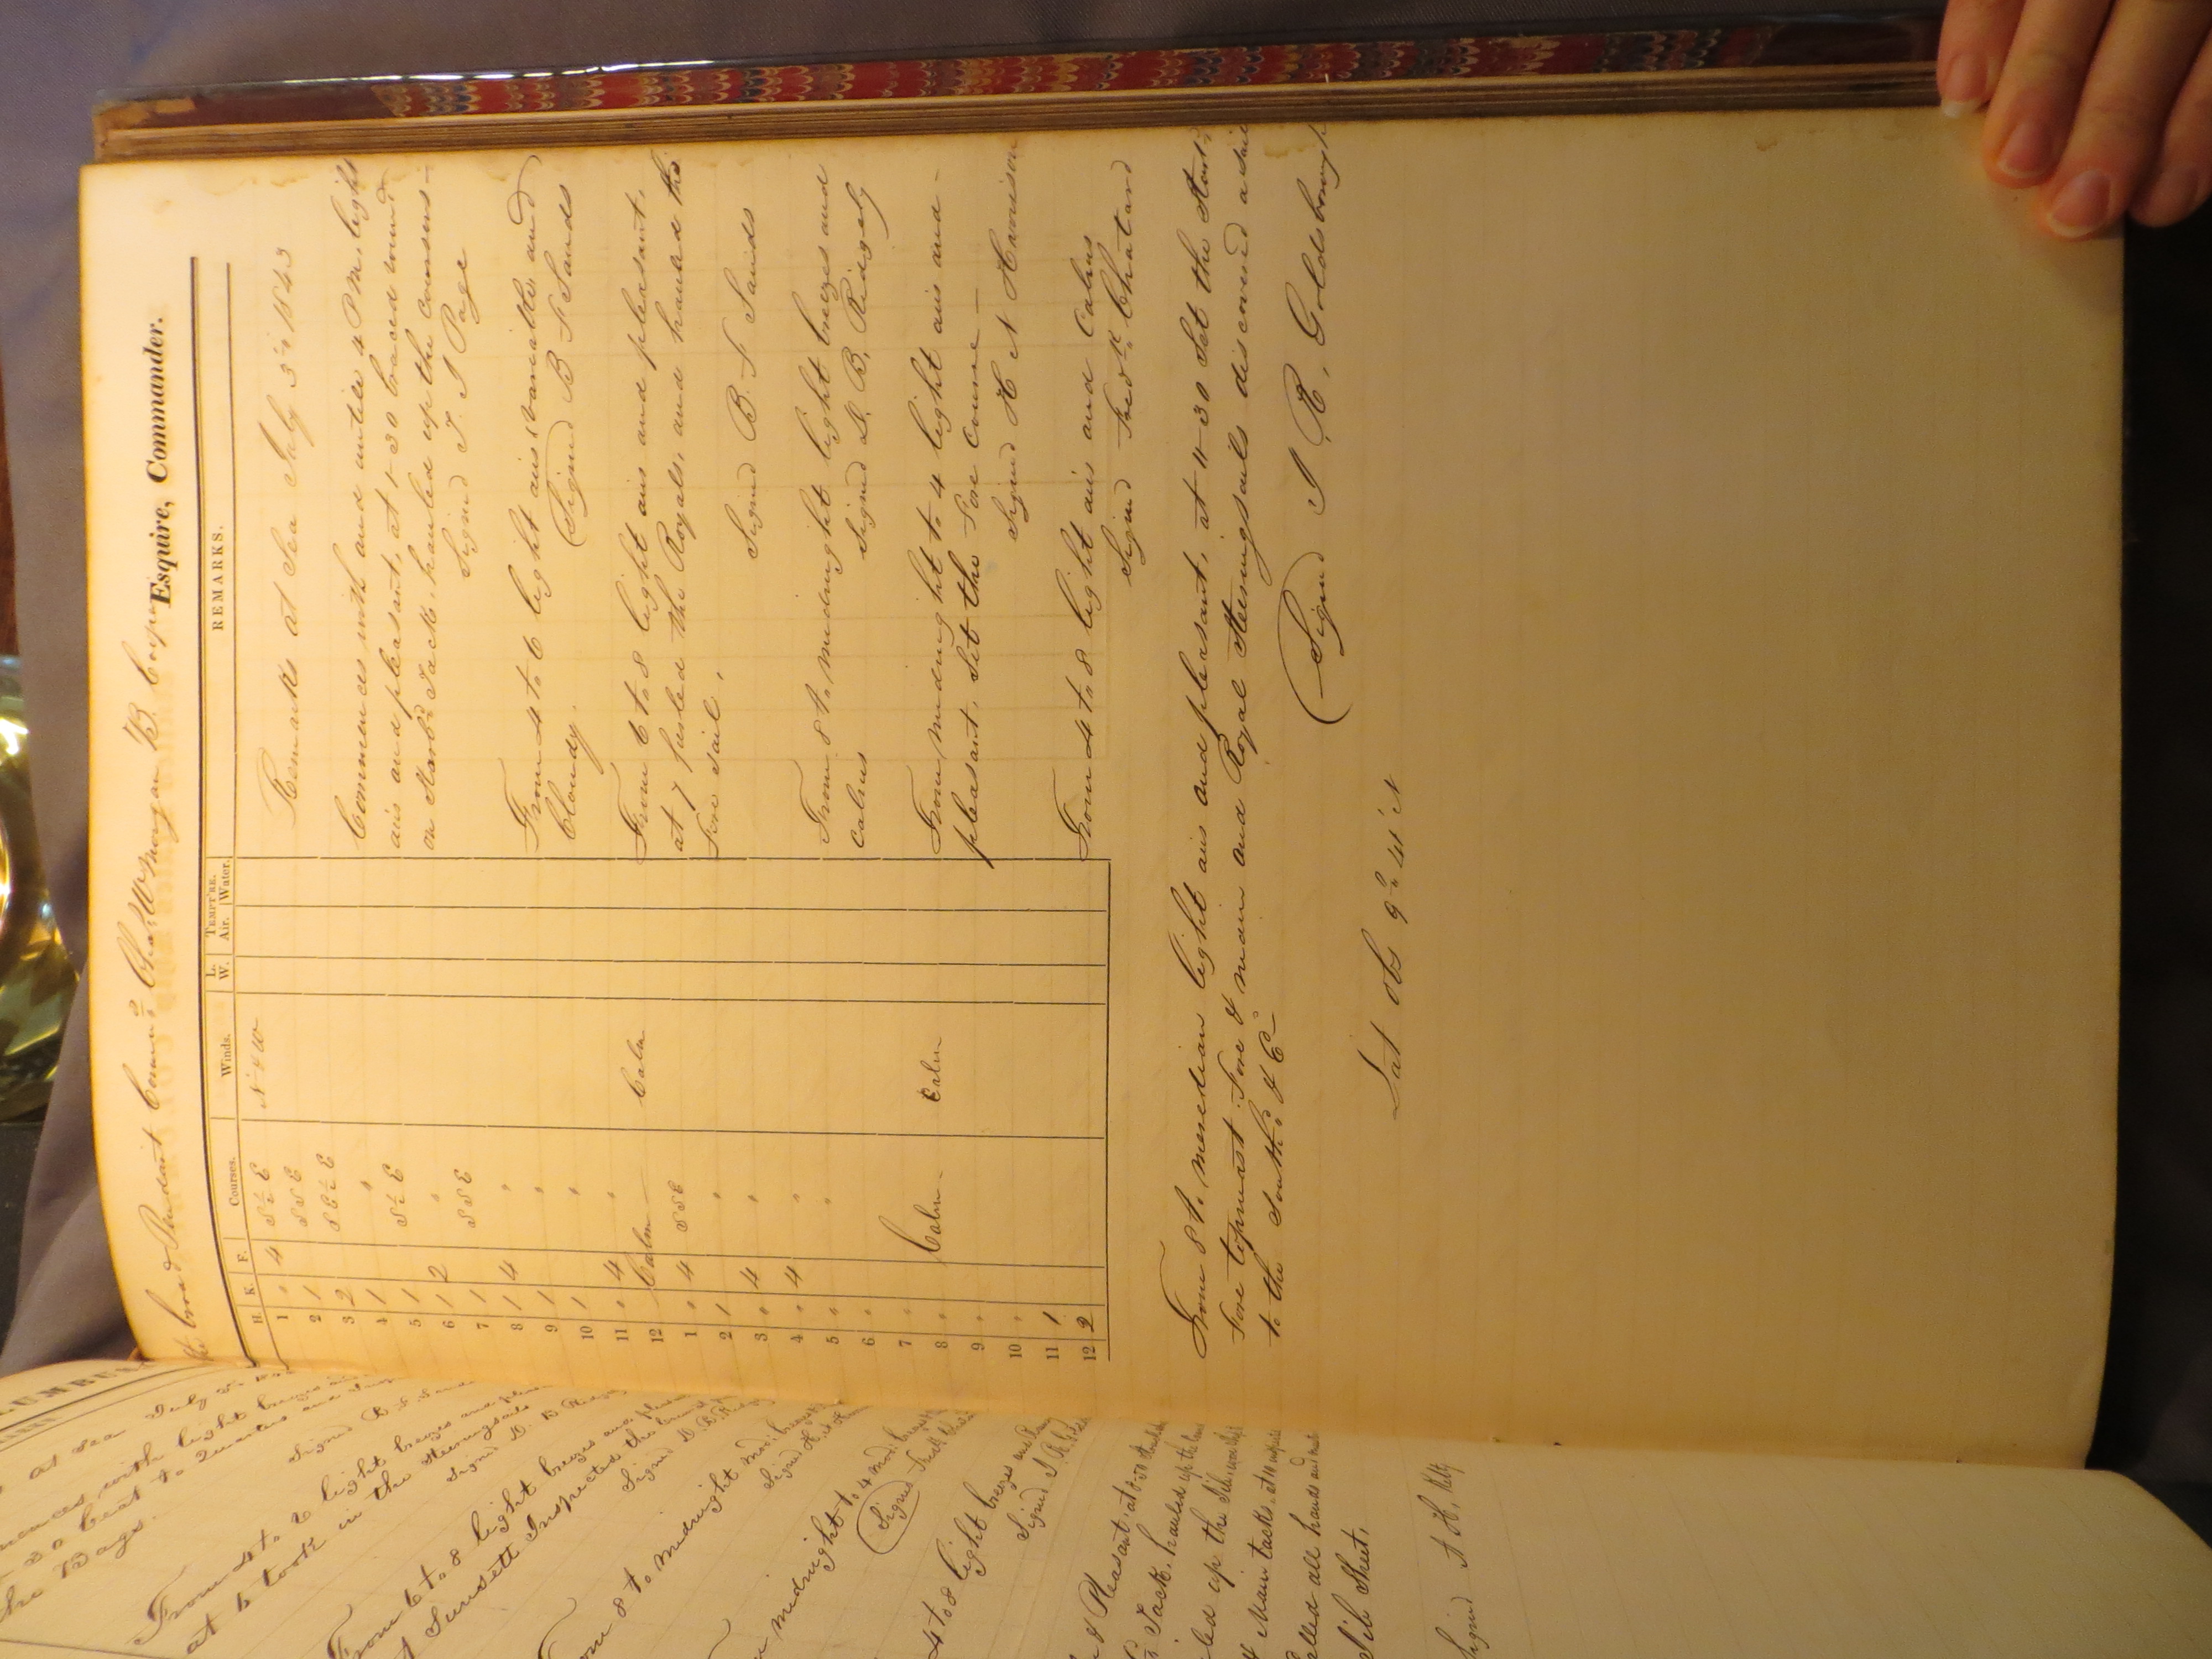 the broad Pendant Comm<sup>o</sup> Chas. W. Morgan B. Esquire, Commander.
H. K. F. Courses. Winds. L. W. TEMPT'RE. Air. Water. REMARKS.
1 " 4 S ½ E N & W
2 1 S S E
3 2 S E ½ E
4 1 "
5 1 S ½ E
6 1 2 "
7 1 S S E
8 1 4 "
9 1 "
10 1 "
11 " 4 "
12 Calm Calm
1 " 4 S S E
2 1 "
3 " 4 "
4 " 4 "
5 " "
6 "
7 "
8 " Calm Calm
9 "
10 "
11 1
12 2
Remarks at Sea July 3<sup>d</sup> 1843
Commences with and until 4 P M. light
airs and pleasant, at 1-30 braced round
on Starb<sup>d</sup> Tack, hauled up the courses-
Signed T. J Page
From 4 to 6 light airs (variable and
Cloudy. (Signed B F Sands
From 6 to 8 light airs and pleasant.
at 7 furled the Royals, and hauled the
Fore sail.
Signed B. F Sands
From 8 to midnight light breezes and
calms Signed D. B. Ridgely
From midnight to 4 light airs and-
pleasant. Set the Fore Course-
Signed H N Harrison
From 4 to 8 light airs and Calms
Signed Fred<sup>k</sup> Chatard
From 8 to meredian light airs and pleasant, at 11-30 Set the Starb<sup>d</sup>
Fore topmast. Fore & main and Royal Steeringsails discovered a sail
to the South<sup>d</sup> & E-
(Signed J R. Goldsborough
Lat obs 9° 41' N
at Sea July
mences with light breezes
30 beat to Quarters and
the Bags.
Signed B. F. Sands
From 4 to 6 light breezes and
at 6 took in the Steeringsails
Signed D. B Ridgely
From 6 to 8 light breezes and
Sunsett Inspected the
Signed D. B. Ridgely
From 8 to midnight mod: breezes
Signed H. N
midnight to 4 mod: breezes
(Signed
4 to 8 light breezes and
Signed J. R.
& Pleasant, at 8-30
Tack, hauled up the
led up the Jib,
& Main tacks, at
alled all hands and
Jib Sheet,
Signed